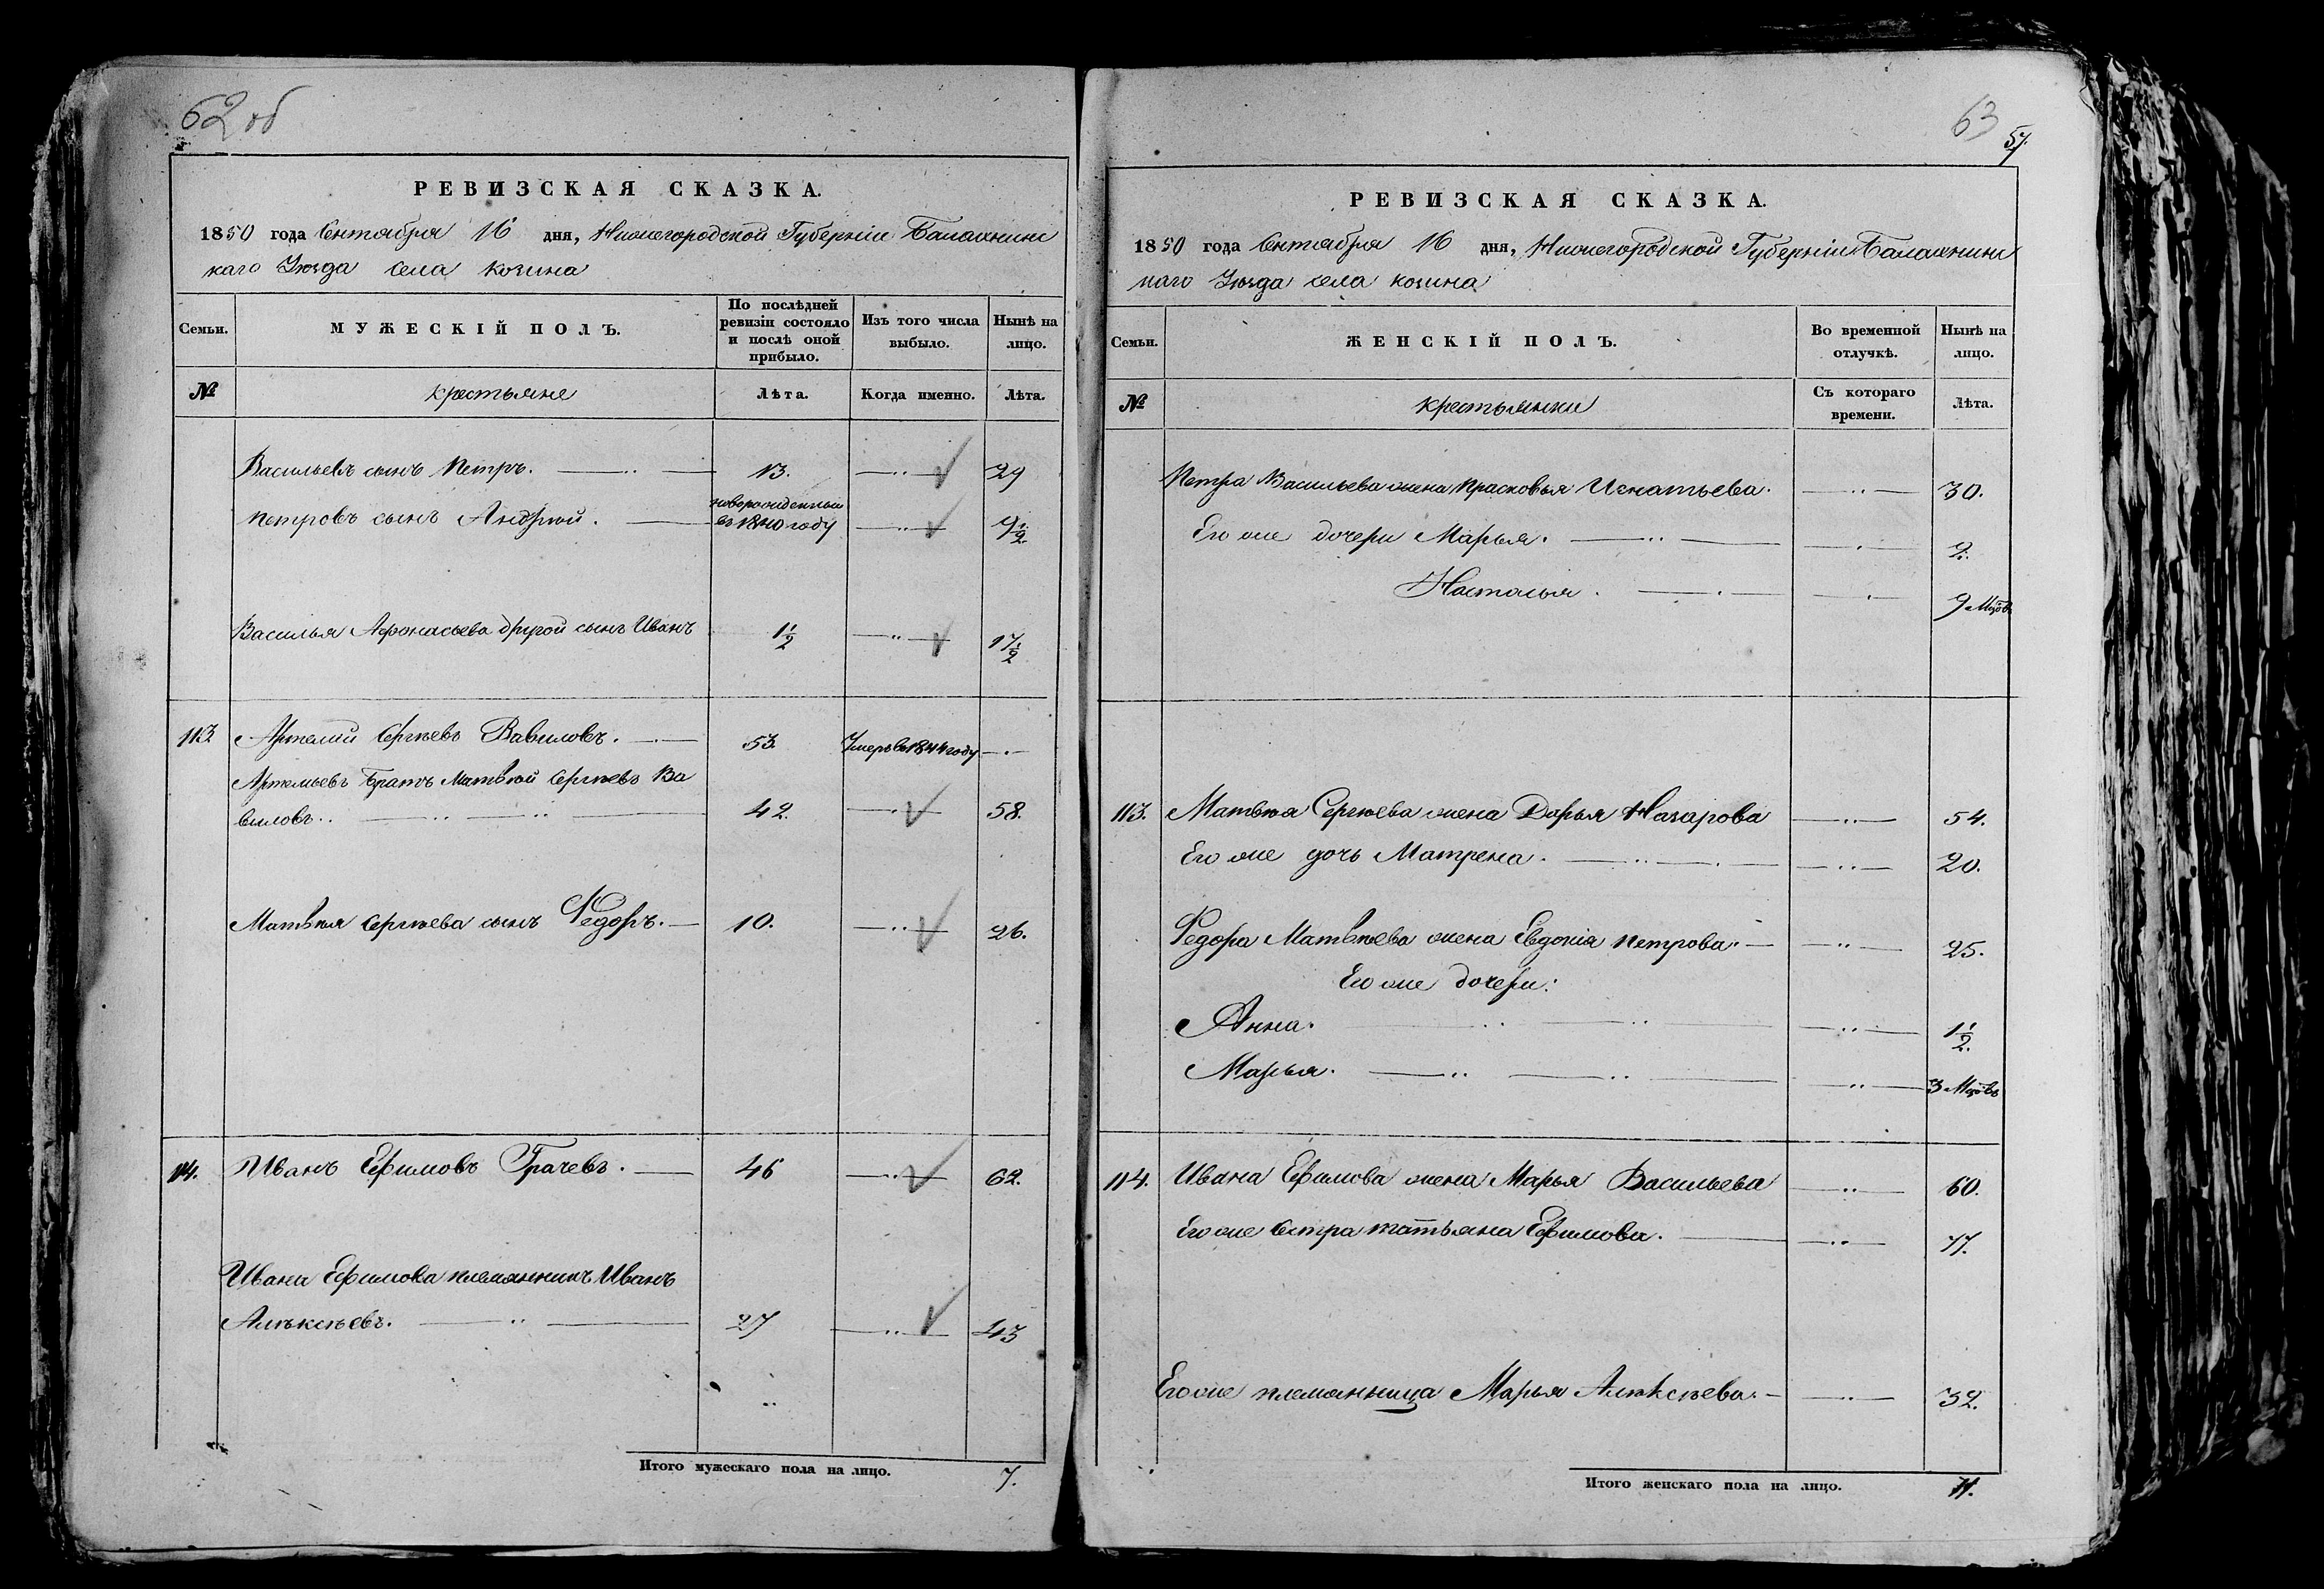 62 об
РЕВИЗСКАЯ СКАЗКА.
1850 года Сентября 16 дня, Нижегородской Губерніи Балахнинс
каго Уѣзда села Козина
Семьи.
МУЖЕСКІЙ ПОЛЪ.
По послѣдней ревизіи состояло и послѣ оной прибыло.
Изъ того числа выбыло.
Нынѣ на лицо.
№
Крестьяне
Лѣта.
Когда именно.
Лѣта.
Васильевъ сынъ Петръ. 13. 29
Петровъ сынъ Андрей. новорожденный въ 1840 году 9 1/2
Василья Афонасьева другой сынъ Иванъ 1 1/2 17 1/2
113 Артемий Сергѣевъ Вавиловъ. 53. Умеръ въ 1844 году
Артемьевъ братъ Матвѣй Сергѣевъ Ва
виловъ. 42. 58.
Матвѣя Сергѣева сынъ Федоръ. 10. 26.
114. Иванъ Ефимовъ Грачевъ. 46 62.
Ивана Ефимова племянникъ Иванъ
Алѣксѣевъ. 27 43
Итого мужескаго пола на лицо. 7.
63
57.
РЕВИЗСКАЯ СКАЗКА.
1850 года Сентября 16 дня, Нижегородской Губерніи Балахнинс
каго Уѣзда села Козина
Семьи.
ЖЕНСКІЙ ПОЛЪ.
Во временной отлучкѣ.
Нынѣ на лицо.
№
Крестьянки
Съ котораго времени.
Лѣта.
Петра Васильева жена Прасковья Игнатьева. 30.
Его же дочери Марья. 2.
Насталья. 9 Мцовъ
113. Матвѣя Сергѣева жена Дарья Назарова 54.
Его же дочь Матрена. 20.
Федора Матвѣева жена Евдокія Петрова. 25.
Его же дочери:
Анна. 1 1/2.
Марья. 3 Мцовъ
114. Ивана Ефимова жена Марья Васильева 60.
Его же Сестра Татьяна Ефимова. 77.
Его же племянница Марья Алѣксѣева. 32.
Итого женскаго пола на лицо. 11.